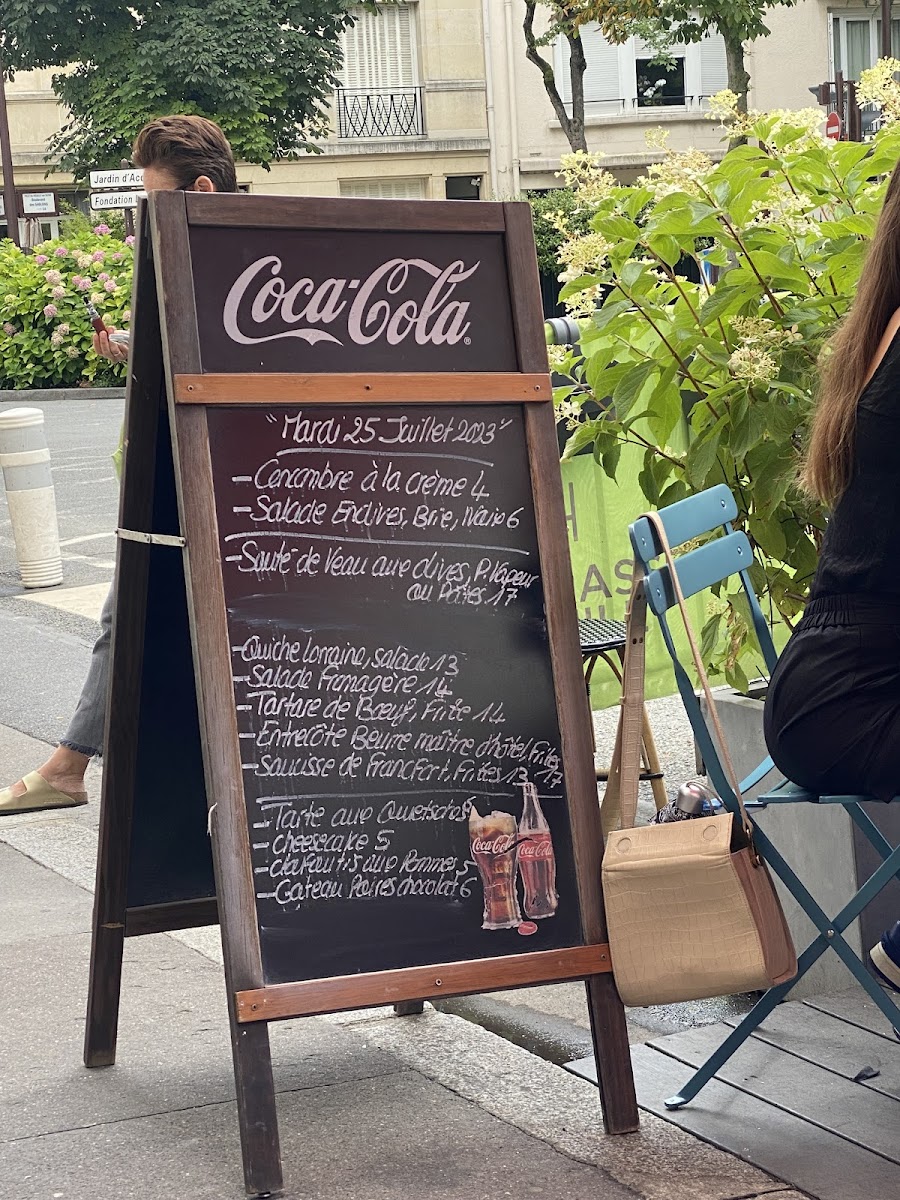 Jardin d'Acc
Fondation L
Coca-Cola
"Mardi 25 Juillet 2023"
- Concombre à la crème 4
- Salade Endives, Brie, Noix 6
- Sauté de Veau aux olives, P. Vapeur
ou Pâtes 17
- Quiche lorraine, salade 13
- Salade Fromagère 14
- Tartare de Bœuf, Frite 14
- Entrecôte Beurre maître d'hôtel, Frites
- Saucisse de Francfort, Frites 13 17
- Tarte aux Quetsches 5
- cheesecake 5
- clafoutis aux Pommes 5
- Gateau Poires chocolat 6
Coca-Cola
Coca-Cola